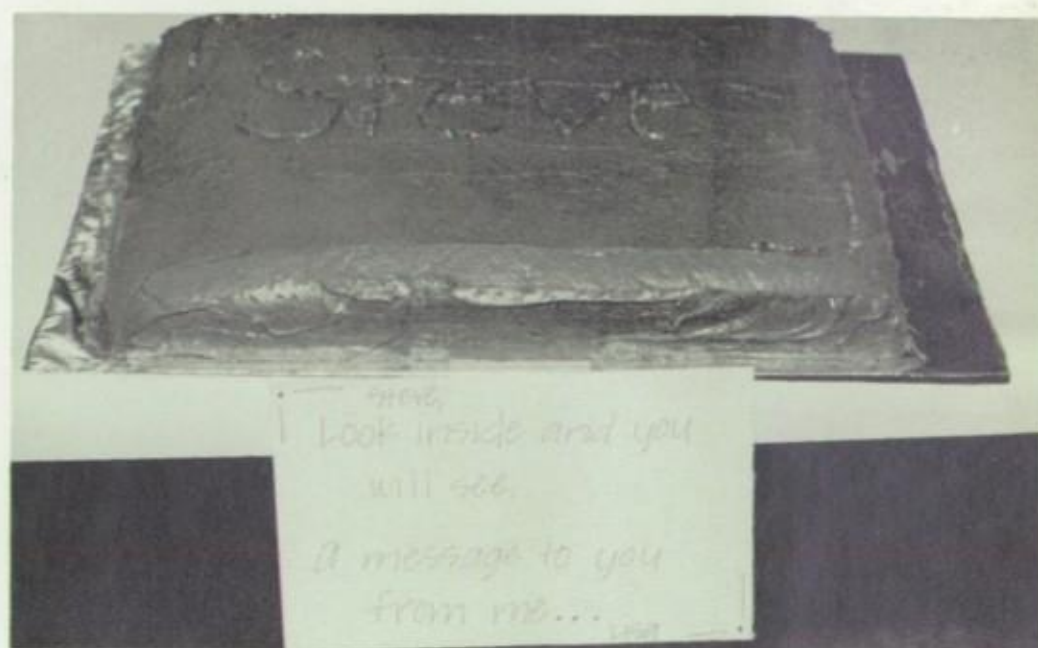 Steve
Steve,
Look inside and you
will see
a message to you
from me...